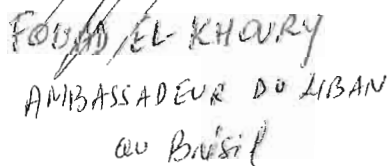 FOUAD EL-KHOURY
AMBASSADEUR DU LIBAN
au Brésil